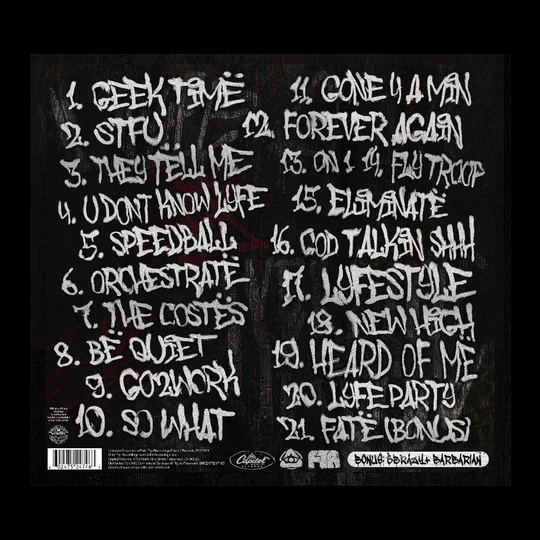 1. GEEK TIMË
2. STFU
3. THEY TËLL ME
4. U DONT KNOW LYFE
5. SPEEDBALL
6. ORCHESTRATË
7. THE COSTËS
8. BË QUIET
9. GO2WORK
10. SO WHAT
11. GONE 4 A MIN
12. FOREVER AGAIN
13. ON 1 14. FLY TROOP
15. ELIMINATË
16. GOD TALKIN SHHH
17. LYFESTYLE
18. NEW HIGH
19. HEARD OF MË
20. LYFE PARTY
21. FATË (BONUS)
Capitol
BONUS: ŠBRAZY + BARBARIAN